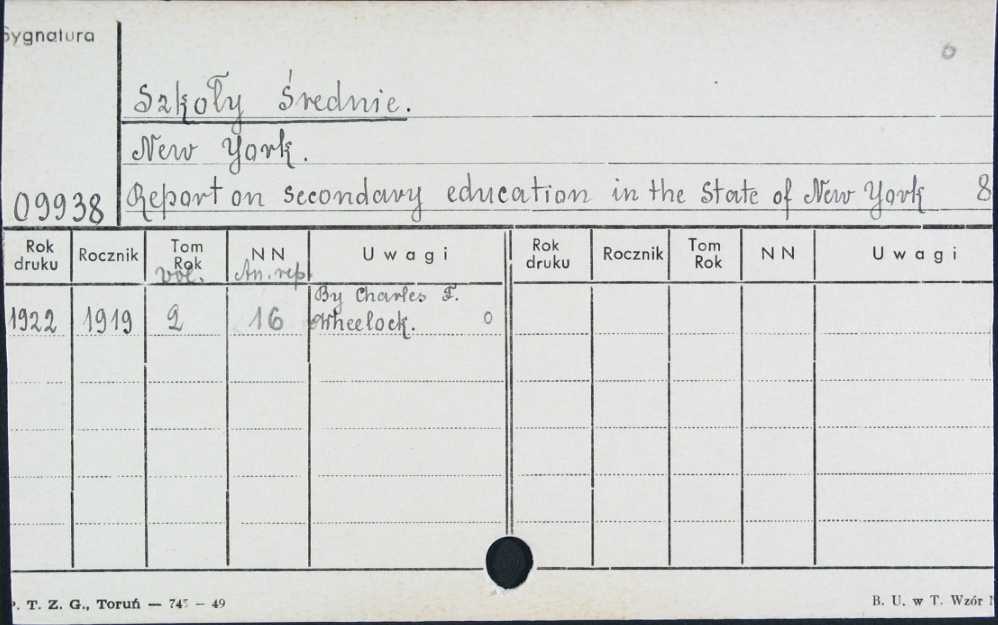 Sygnatura
o
Szkoły Średnie.
New York.
09938 Report on secondary education in the State of New York 8
Rok druku Rocznik Tom Rok vol. NN An. rep. Uwagi Rok druku Rocznik Tom Rok NN Uwagi
By Charles F.
1922 1919 2 16 Wheelock. o
P. T. Z. G., Toruń — 745 – 49 B. U. w T. Wzór N